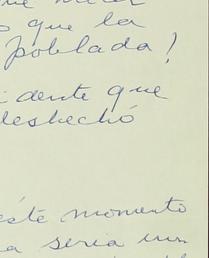 o que la
poblada!
idente que
deshechó
este momento
a seria un